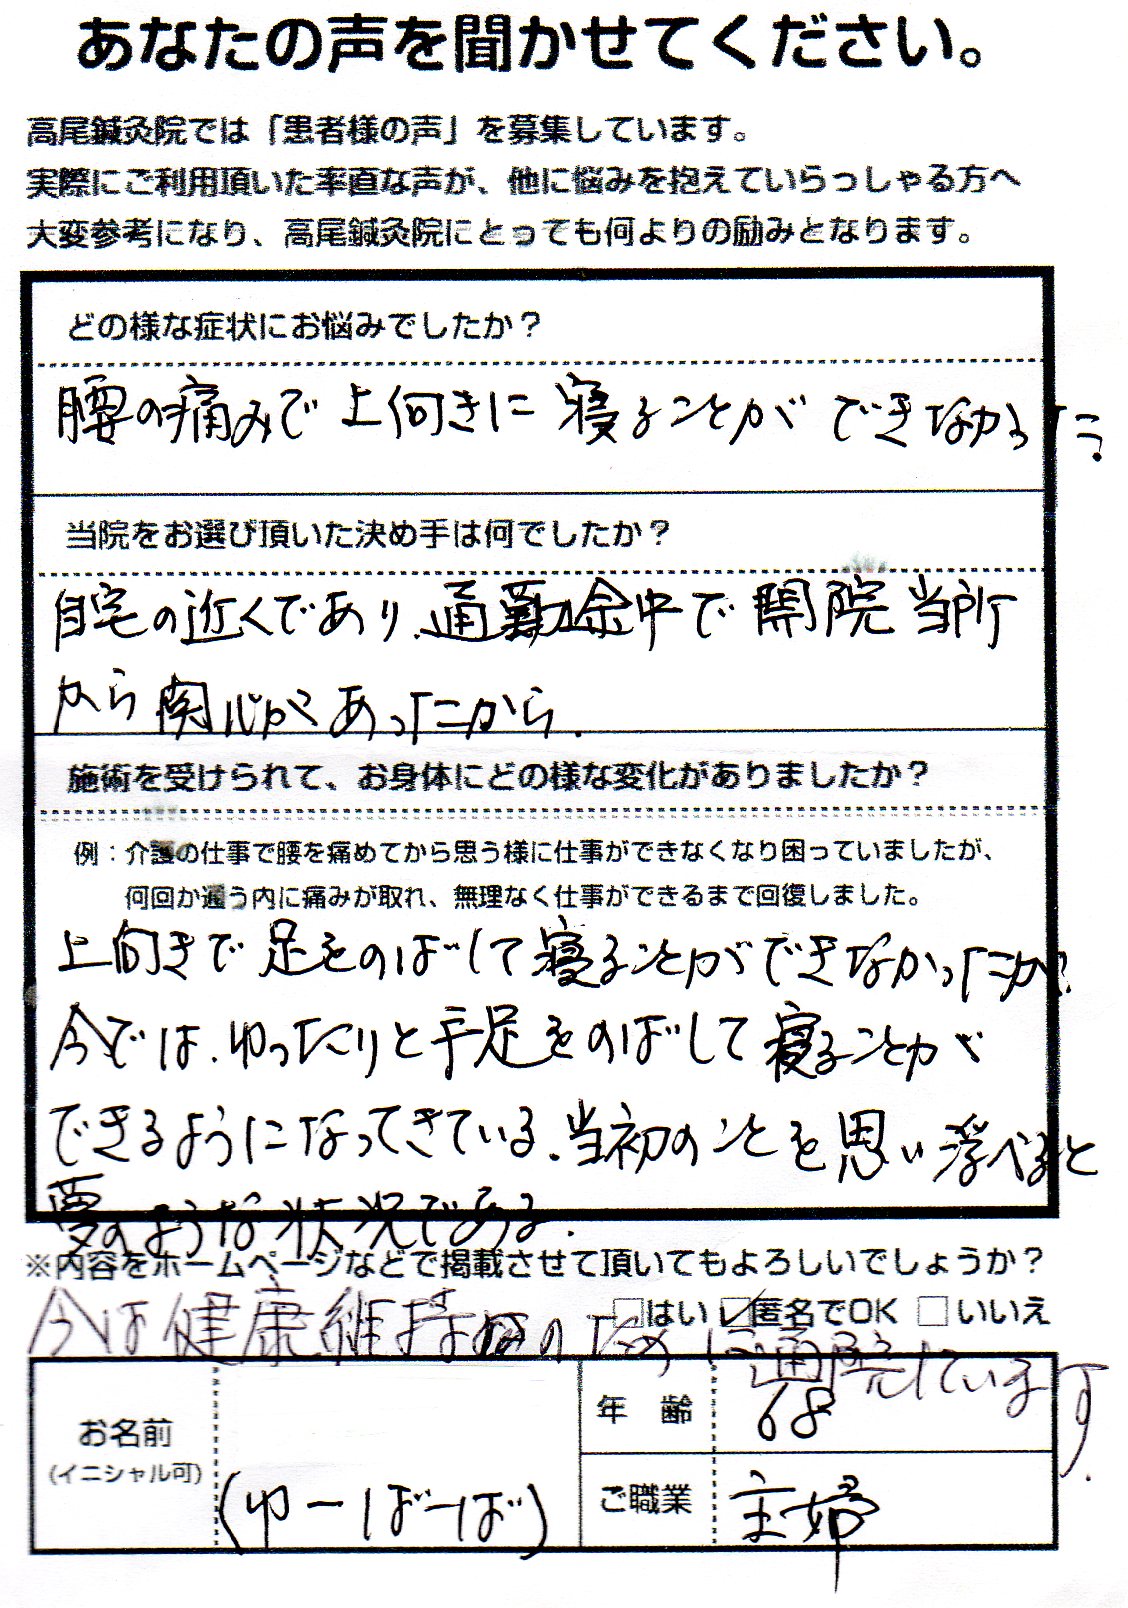 あなたの声を聞かせてください。
高尾鍼灸院では「患者様の声」を募集しています。
実際にご利用頂いた率直な声が、他に悩みを抱えていらっしゃる方へ
大変参考になり、高尾鍼灸院にとっても何よりの励みとなります。
どの様な症状にお悩みでしたか？
腰の痛みで上向きに寝ることができなかった.
当院をお選び頂いた決め手は何でしたか？
自宅の近くであり、通勤途中で開院当所
から関心があったから.
施術を受けられて、お身体にどの様な変化がありましたか？
例：介護の仕事で腰を痛めてから思う様に仕事ができなくなり困っていましたが、
何回か通う内に痛みが取れ、無理なく仕事ができるまで回復しました。
上向きで足をのばして寝ることができなかったが、
今では、ゆったりと手足をのばして寝ることが
できるようになってきている.当初のことを思い浮べると
夢のような状況である.
※内容をホームページなどで掲載させて頂いてもよろしいでしょうか？
□はい ☑匿名でOK □いいえ
今は健康維持のために通院しています.
お名前
(イニシャル可)
(ゆーばーば)
年 齢
68
ご職業
主婦